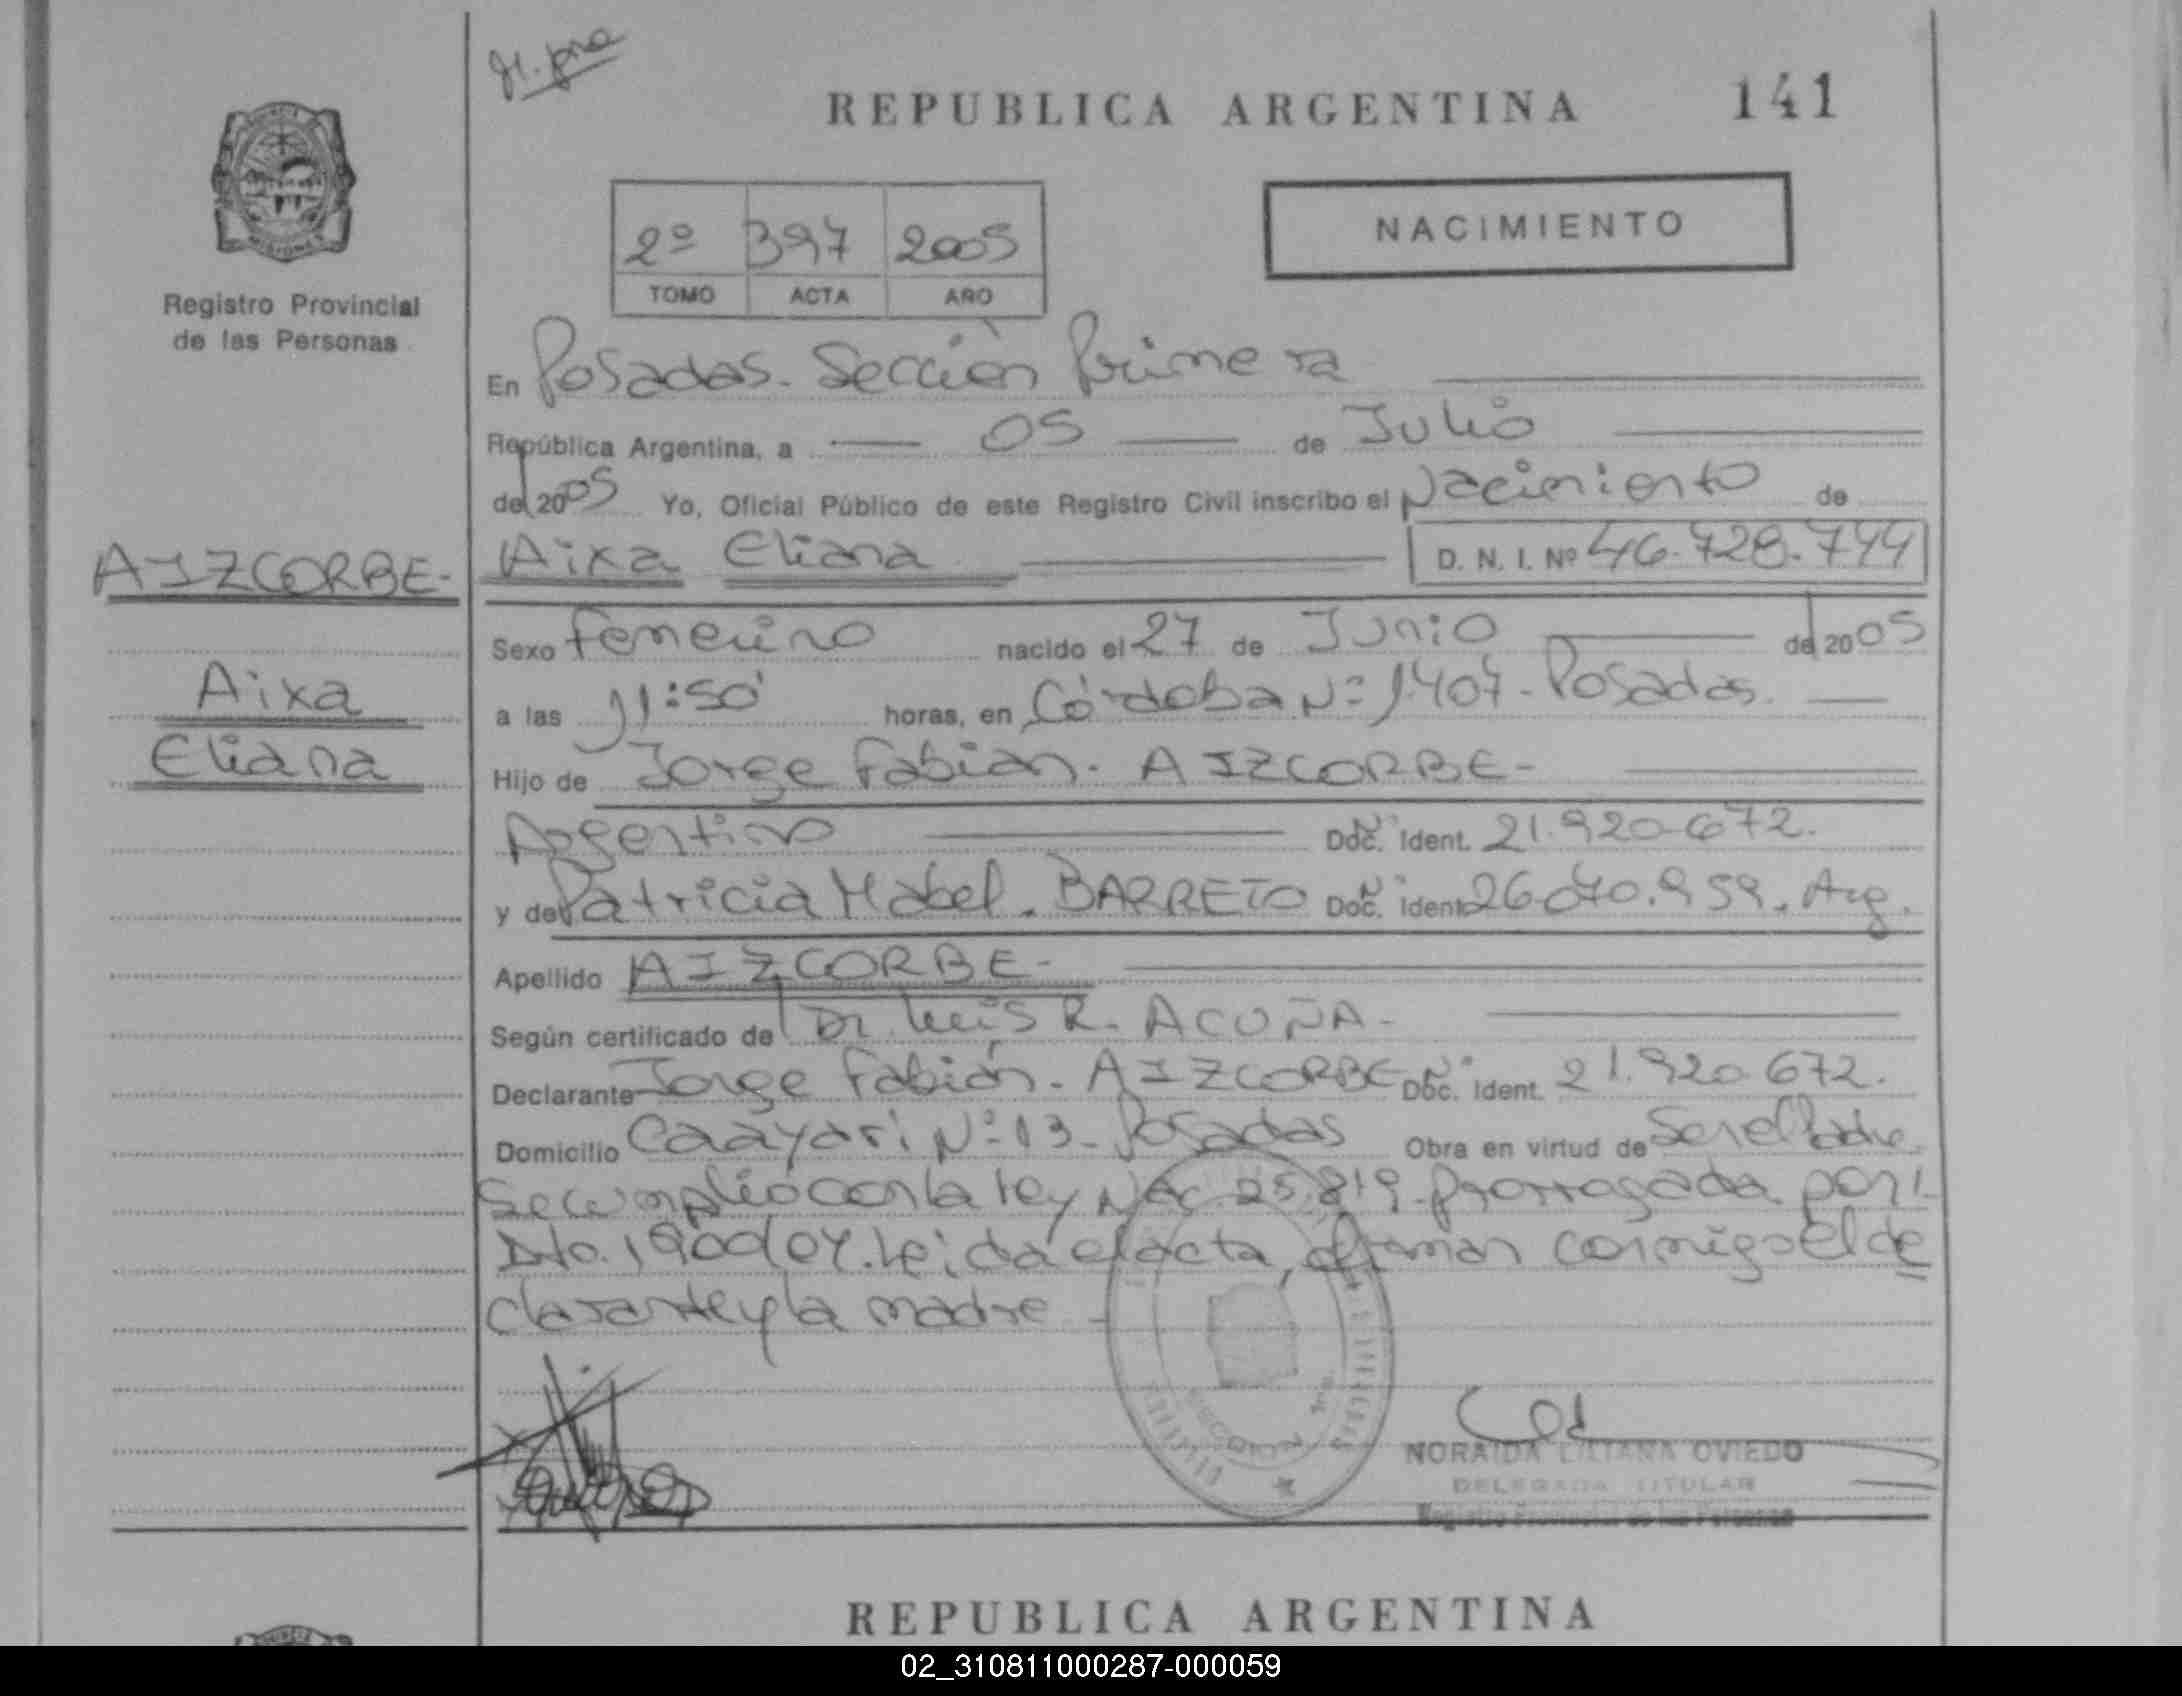 REPUBLICA ARGENTINA 141
2º 397 2005
TOMO ACTA AÑO
NACIMIENTO
MISIONES
Registro Provincial
de las Personas
En Posadas. Sección Primera
República Argentina, a 05 de Julio
del 2005 Yo, Oficial Público de este Registro Civil inscribo el Nacimiento de
AIZCORBE- Aixa Eliana D. N. I. Nº 46.728.744
Sexo Femenino nacido el 27 de Junio del 2005
Aixa
a las 11:50' horas, en Córdoba Nº 1407- Posadas.
Eliana
Hijo de Jorge Fabián. AIZCORBE-
Argentino Doc. Ident. 21.920.672.
y de Patricia Mabel. BARRETO Doc. Ident. 26.070.959. Arg.
Apellido AIZCORBE-
Según certificado de Dr. Luis R. ACUÑA-
Declarante Jorge Fabián. AIZCORBE Doc. Ident. 21.920.672.
Domicilio Caayarí Nº 13- Posadas Obra en virtud de Ser el Padre.
Se cumplió con la ley Nac. 25.819- Prorrogada por
Dto. 1900/04. Leída el acta, firman conmigo el de
clarante y la madre -
NORAIDA LILIANA OVIEDO
DELEGADA TITULAR
Registro Provincial de las Personas
REPUBLICA ARGENTINA
02_310811000287-000059